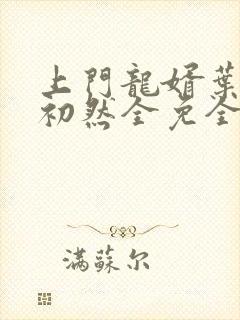 上門龍婿葉
初然全免全
滿蘇尔